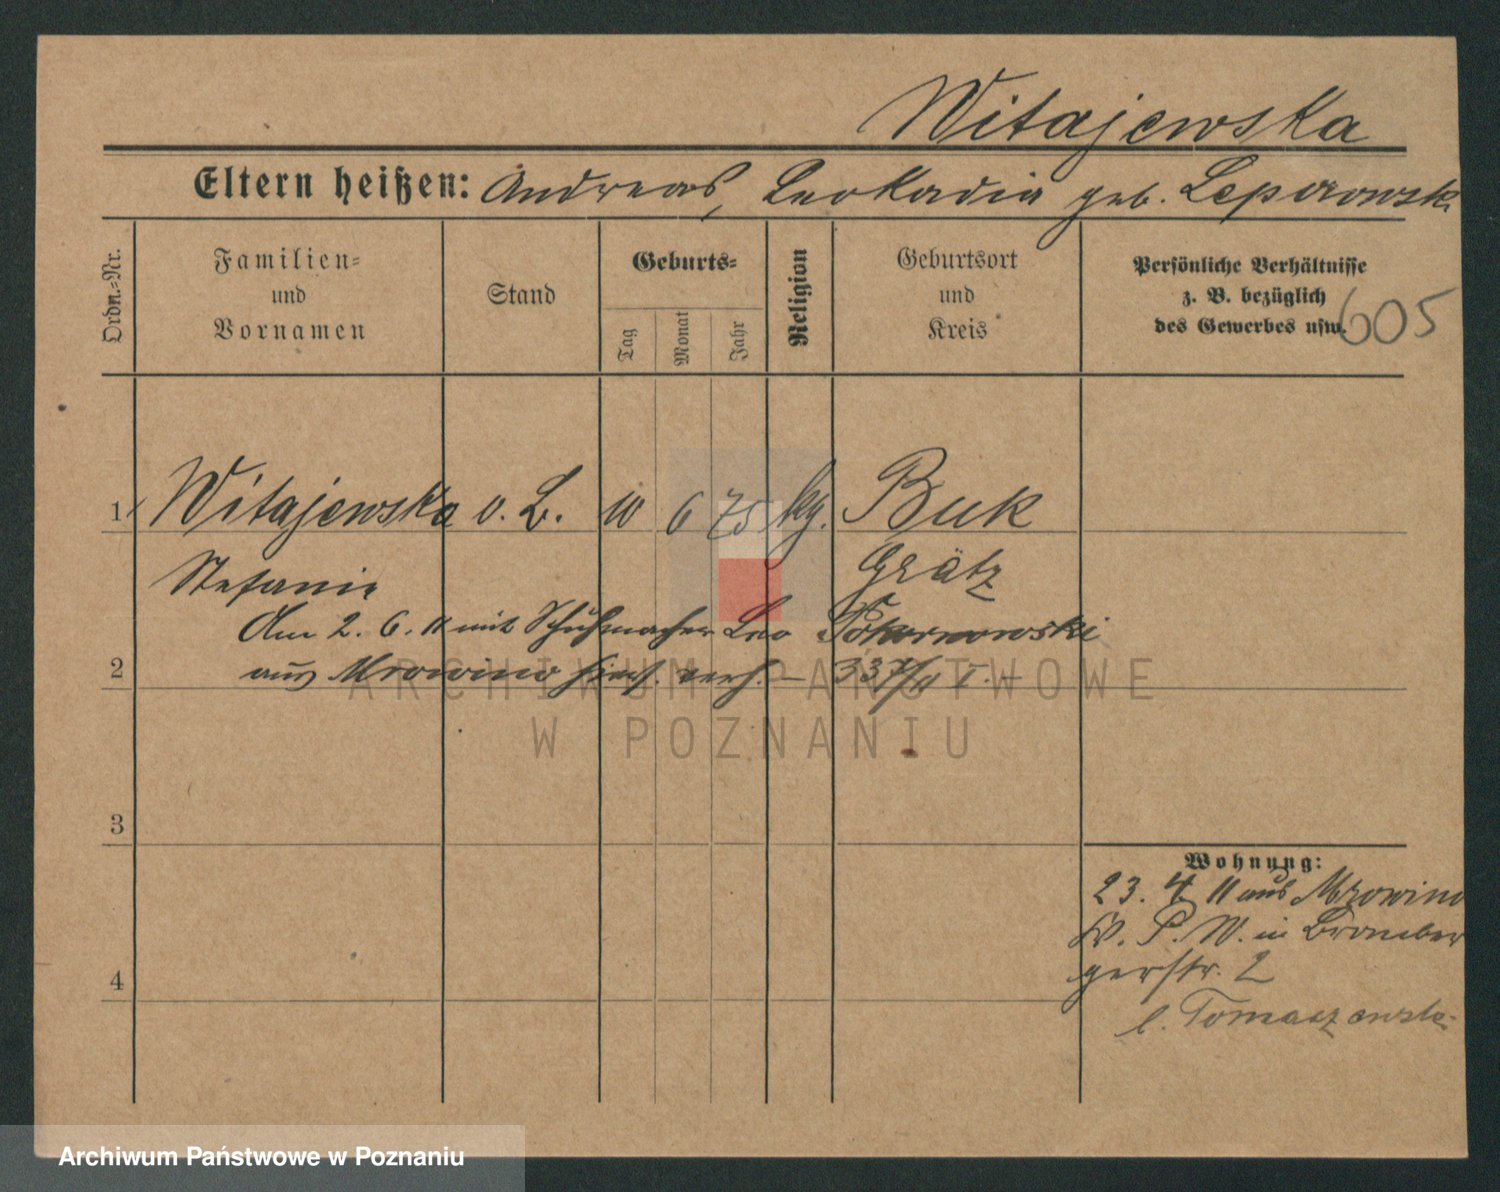 Witajewska
Eltern heißen: Andreas, Leokadia geb. Leporowski
Ordn.=Nr.
Familien=
und
Vornamen
Stand
Geburts=
Tag
Monat
Jahr
Religion
Geburtsort
und
Kreis
Persönliche Verhältnisse
z. B. bezüglich
des Gewerbes usw.
605
1 Witajewska o. B. 10 6 75 kg. Buk
Stefanie Grätz
Am 2. 6. 11 mit Schuhmacher Leo
2 aus Mrowino hier verh. – 337/11 I. –
3
4
Wohnung:
23. 4 11 aus Mrowino
St. P. W. in Bromber
gerstr. 2
b. Tomaszewski
ARCHIWUM PAŃSTWOWE
W POZNANIU
Archiwum Państwowe w Poznaniu